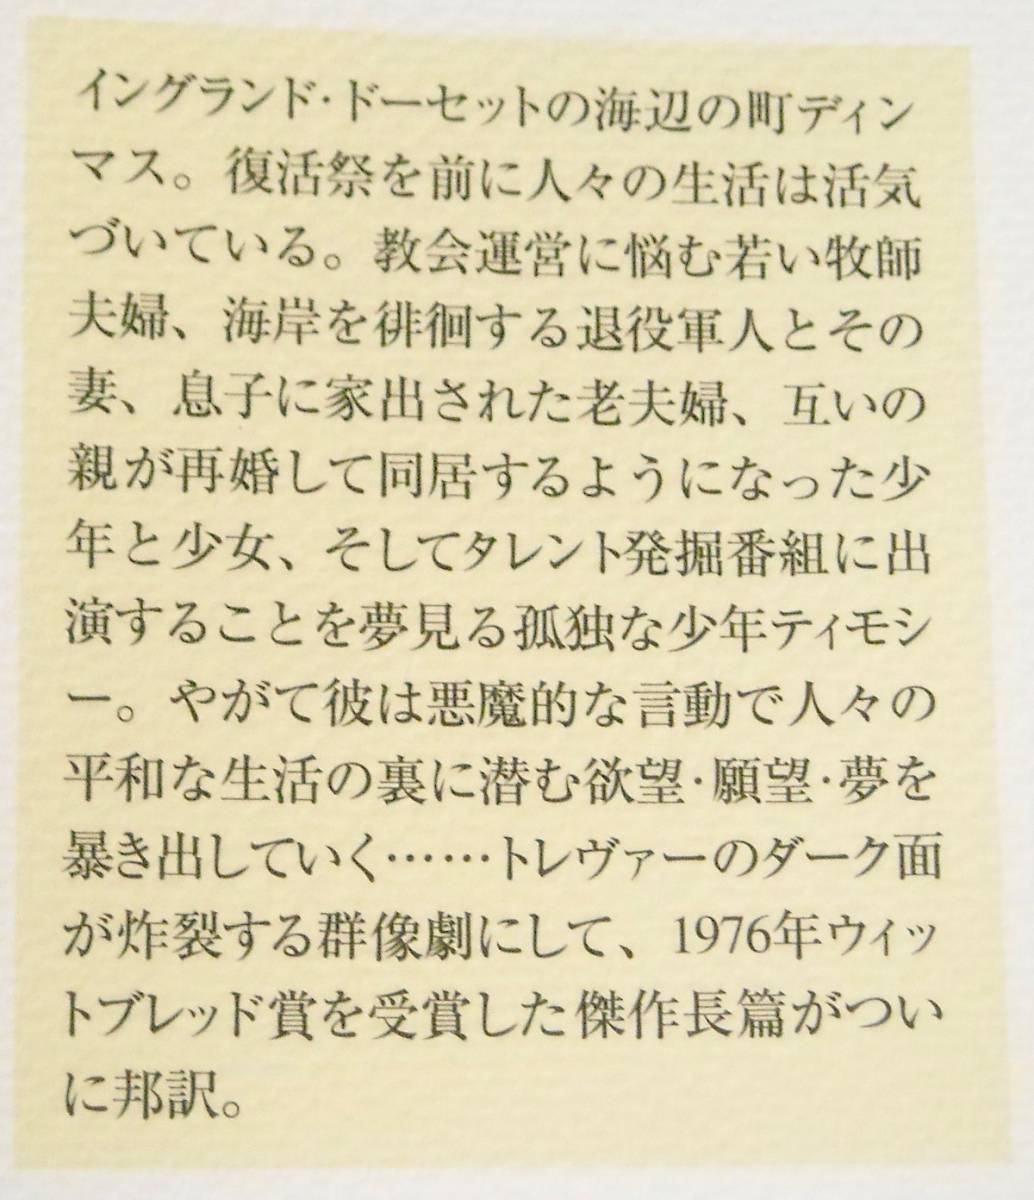 イングランド・ドーセットの海辺の町ディン
マス。復活祭を前に人々の生活は活気
づいている。教会運営に悩む若い牧師
夫婦、海岸を徘徊する退役軍人とその
妻、息子に家出された老夫婦、互いの
親が再婚して同居するようになった少
年と少女、そしてタレント発掘番組に出
演することを夢見る孤独な少年ティモシ
ー。やがて彼は悪魔的な言動で人々の
平和な生活の裏に潜む欲望・願望・夢を
暴き出していく……トレヴァーのダーク面
が炸裂する群像劇にして、1976年ウィッ
トブレッド賞を受賞した傑作長篇がつい
に邦訳。